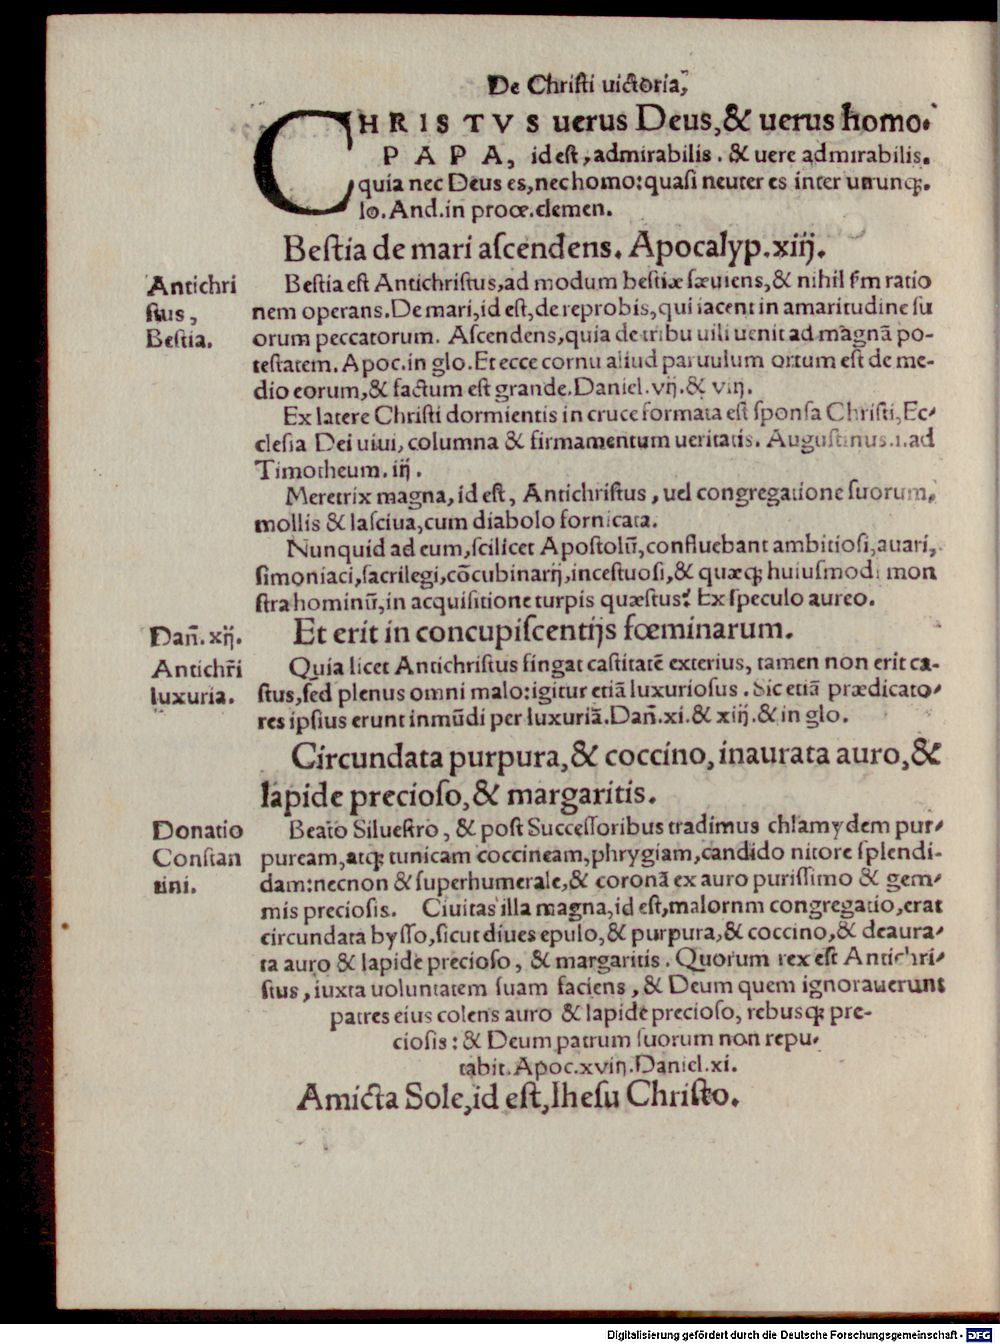 De Christi uictoria,
CHRISTVS uerus Deus,& uerus homo.
PAPA, id est, admirabilis. & uere admirabilis.
quia nec Deus es, nec homo: quasi neuter es inter utrunq;.
Io. And. in proœ. clemen.
Bestia de mari ascendens. Apocalyp. xiij.
Antichri
stus,
Bestia.
Bestia est Antichristus, ad modum bestiæ sæuiens,& nihil sm ratio
nem operans. De mari, id est, de reprobis, qui iacent in amaritudine su
orum peccatorum. Ascendens, quia de tribu uili uenit ad magnā po-
testatem. Apoc. in glo. Et ecce cornu aliud paruulum ortum est de me-
dio eorum,& factum est grande. Daniel. vij. & viij.
Ex latere Christi dormientis in cruce formata est sponsa Christi, Ec-
clesia Dei uiui, columna & firmamentum ueritatis. Augustinus. 1. ad
Timotheum. iij.
Meretrix magna, id est, Antichristus, uel congregatione suorum,
mollis & lasciua, cum diabolo fornicata.
Nunquid ad eum, scilicet Apostolū, confluebant ambitiosi, auari,
simoniaci, sacrilegi, cōcubinarij, incestuosi,& quæq; huiusmodi mon
stra hominū, in acquisitione turpis quæstus? Ex speculo aureo.
Dañ. xij.
Et erit in concupiscentijs fœminarum.
Antichr̄i
luxuria.
Quia licet Antichristus fingat castitatē exterius, tamen non erit ca-
stus, sed plenus omni malo: igitur etiā luxuriosus. Sic etiā prædicato-
res ipsius erunt inmūdi per luxuriā. Dañ. xi. & xiij. & in glo.
Circundata purpura,& coccino, inaurata auro,&
lapide precioso,& margaritis.
Donatio
Constan
tini.
Beato Siluestro, & post Successoribus tradimus chlamydem pur-
puream, atq; tunicam coccineam, phrygiam, candido nitore splendi-
dam: necnon & superhumerale,& coronā ex auro purissimo & gem-
mis preciosis. Ciuitas illa magna, id est, malornm congregatio, erat
circundata bysso, sicut diues epulo,& purpura,& coccino,& deaura-
ta auro & lapide precioso, & margaritis. Quorum rex est Antichri-
stus, iuxta uoluntatem suam faciens, & Deum quem ignorauerunt
patres eius colens auro & lapide precioso, rebusq; pre-
ciosis: & Deum patrum suorum non repu-
tabit. Apoc. xviij. Daniel. xi.
Amicta Sole, id est, Ihesu Christo.
Digitalisierung gefördert durch die Deutsche Forschungsgemeinschaft - DFG